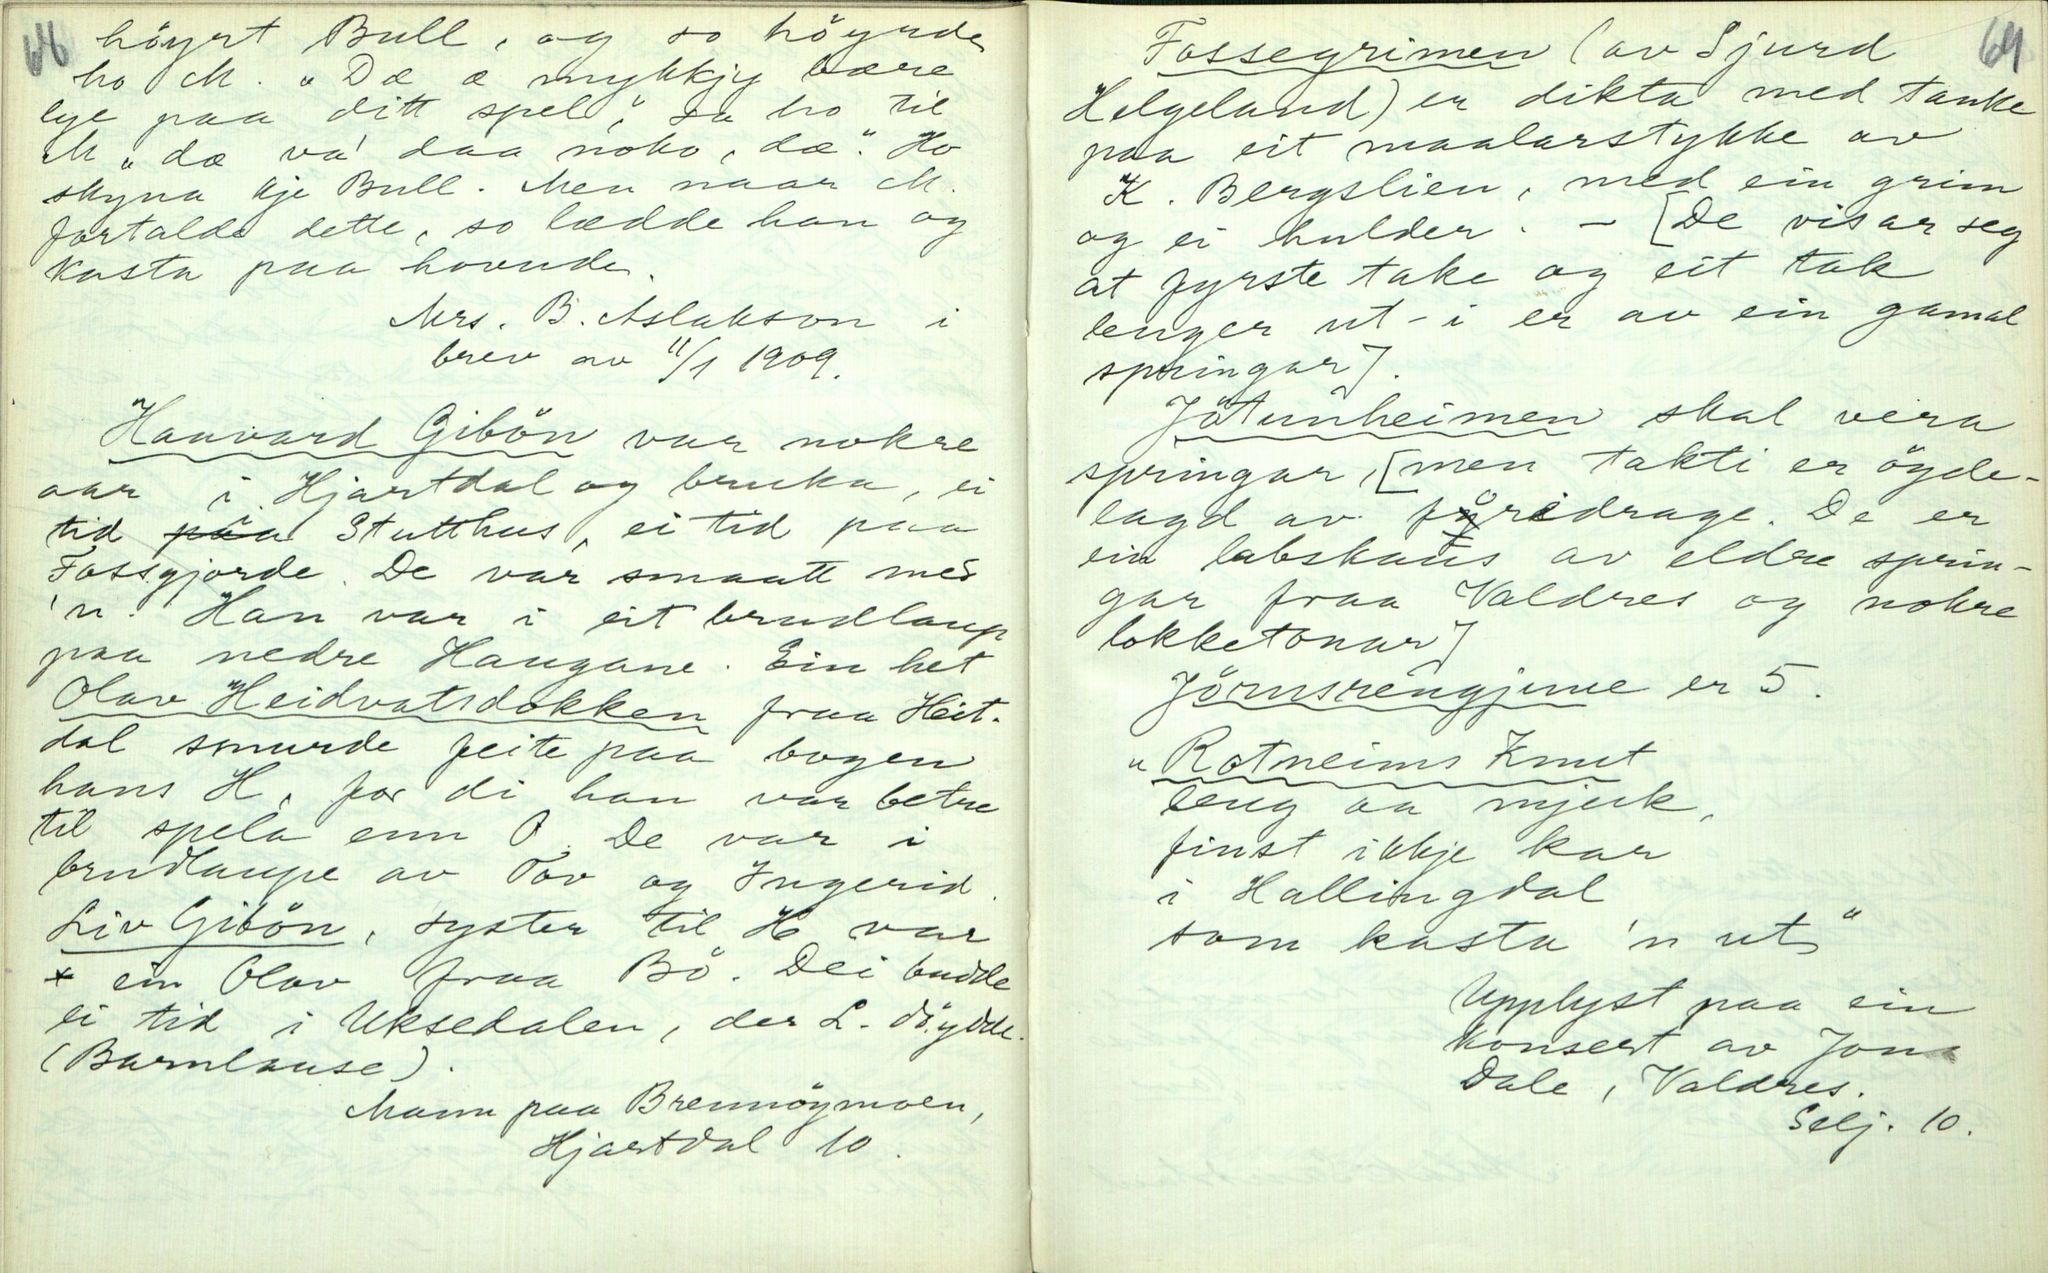 68
höyrt Bull, og so höyrde
ho M. „Dæ æ mykkjy bære
lye paa ditt spel", sa ho til
M „dæ va' daa noko, dæ". Ho
skyna kje Bull. Men naar M.
fortalde dette, so lædde han og
kasta paa hovude.
Mrs. B. Aslakson i
brev av 11/1 1909.
Haavard Gibön var nokre
aar i Hjartdal og bruka, ei
tid paa Stutthus, ei tid paa
Fossgjorde. De var smaatt med
'n. Han var i eit brudlaup
paa nedre Haugane. Ein het
Olav Heidvatsdokken fraa Heit-
dal smurde feite paa bogen
hans H, for di han var betre
til spela enn O. De var i
brudlaupe av Tov og Ingerid.
Liv Gibön, syster til H var
x ein Olav fraa Bö. Dei budde
ei tid i Uksedalen, der L. döydde.
(Barnlause).
Mann paa Brennöymoen,
Hjartdal 10.
69
Fossegrimen (av Sjurd
Helgeland) er dikta med tanke
paa eit maalarstykke av
K. Bergslien, med ein grim
og ei hulder. – [De visar seg
at fyrste take og eit tak
lenger ut-i er av ein gamal
springar].
Jötunheimen skal vera
springar, [men takti er öyde-
lagd av föredrage. De er
ein labskaus av eldre sprin-
gar fraa Valdres og nokre
lokketonar]
Jörnsrengjune er 5.
„Rotneims Knut
leug aa mjuk,
finst ikkje kar
i Hallingdal
som kasta 'n ut"
Upplyst paa ein
konsert av Jon
Dale, Valdres.
Selj. 10.